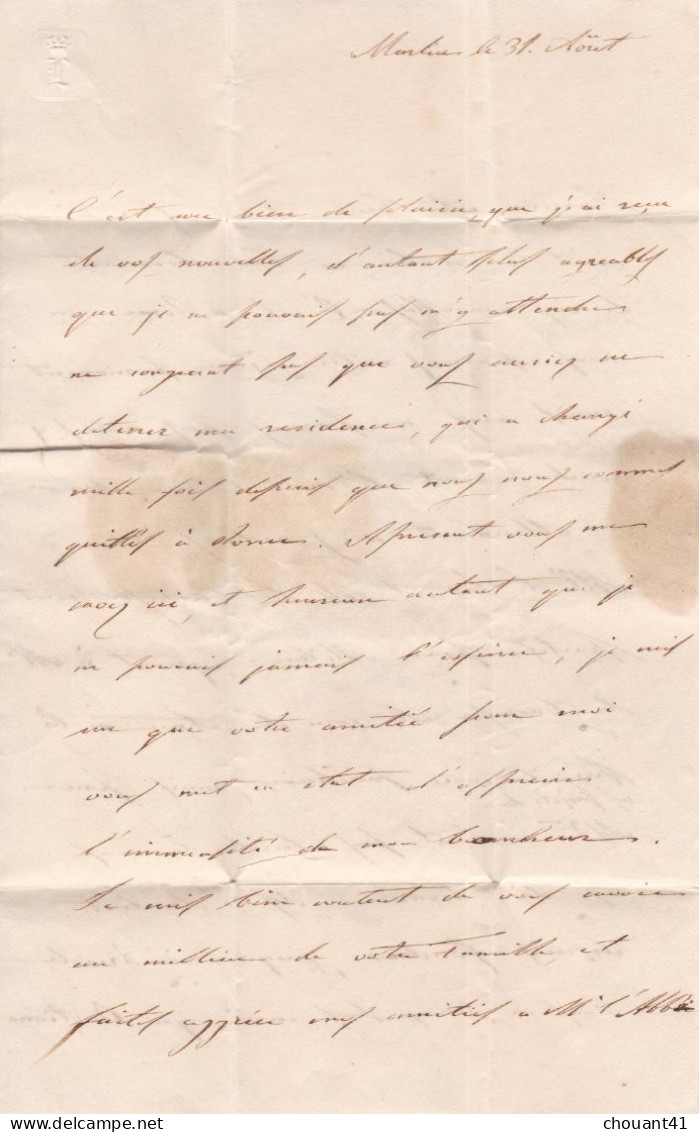 le 31. Août
C'est avec bien de plaisir, que j'ai reçu
de vos nouvelles, d'autant plus agreables
que je ne pouvais pas m'y attendre
ne songeant pas que vous auriez su
deterrer ma residence, qui a changé
mille fois depuis que nous nous sommes
quittés à . Apresent vous me
ici, et heureux autant que je
ne pouvais jamais l'esperer, je suis
que votre amitié pour moi
vous met en état d'apprecier
l'immensité de mon bonheur.
Je suis bien content de vous savoir
au millieu de votre Famille, et
faites agréer mes amitiés a Mr l'Abbé
www.delcampe.net
chouant41